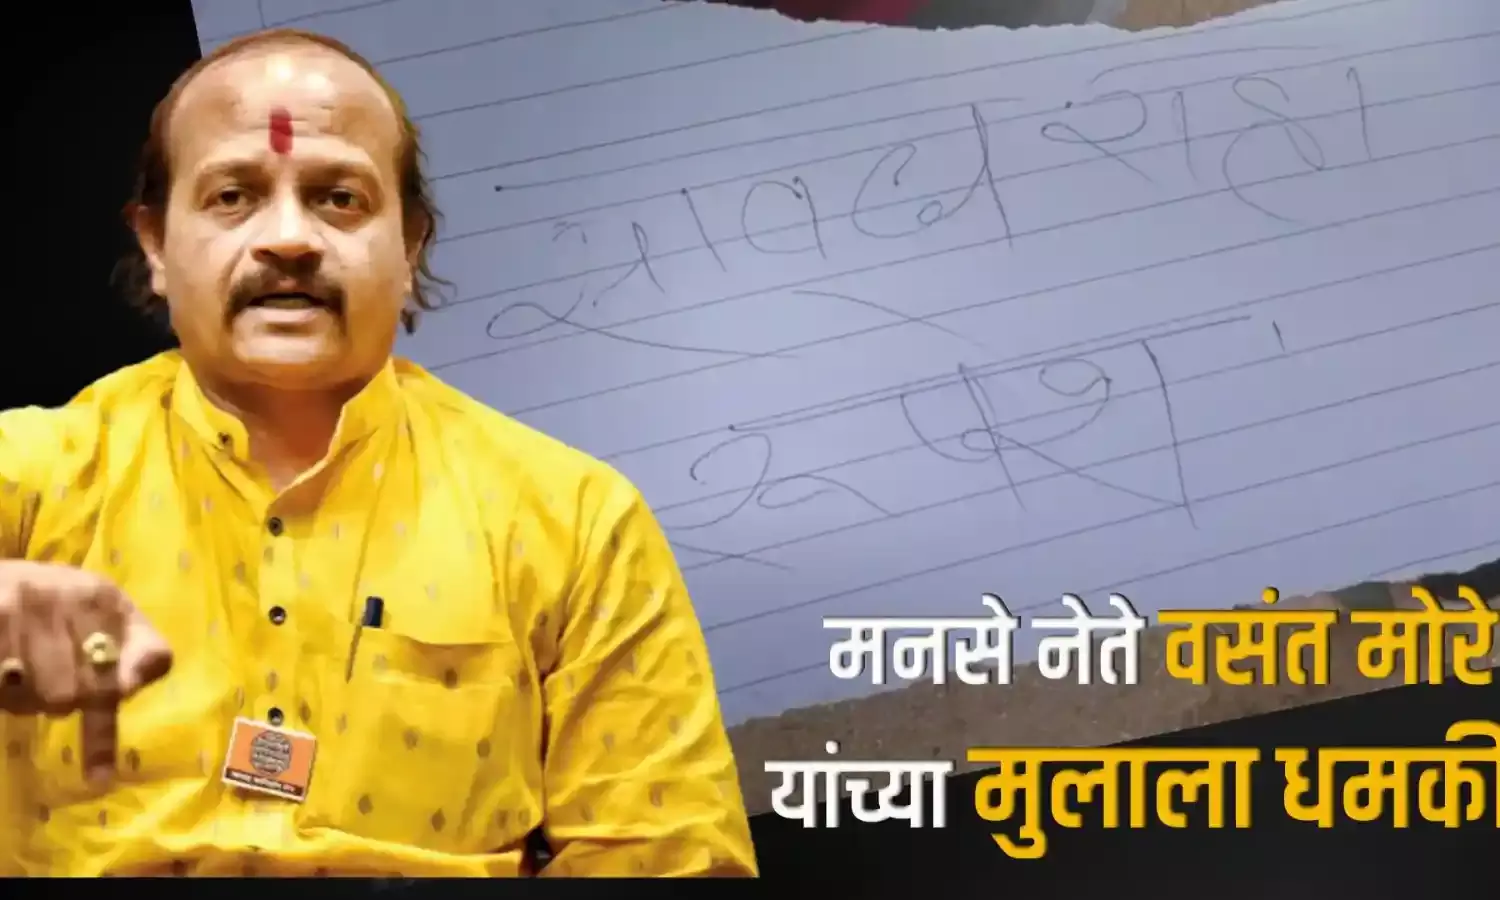 सावध रहा
रुपेश
मनसे नेते वसंत मोरे
यांच्या मुलाला धमकी